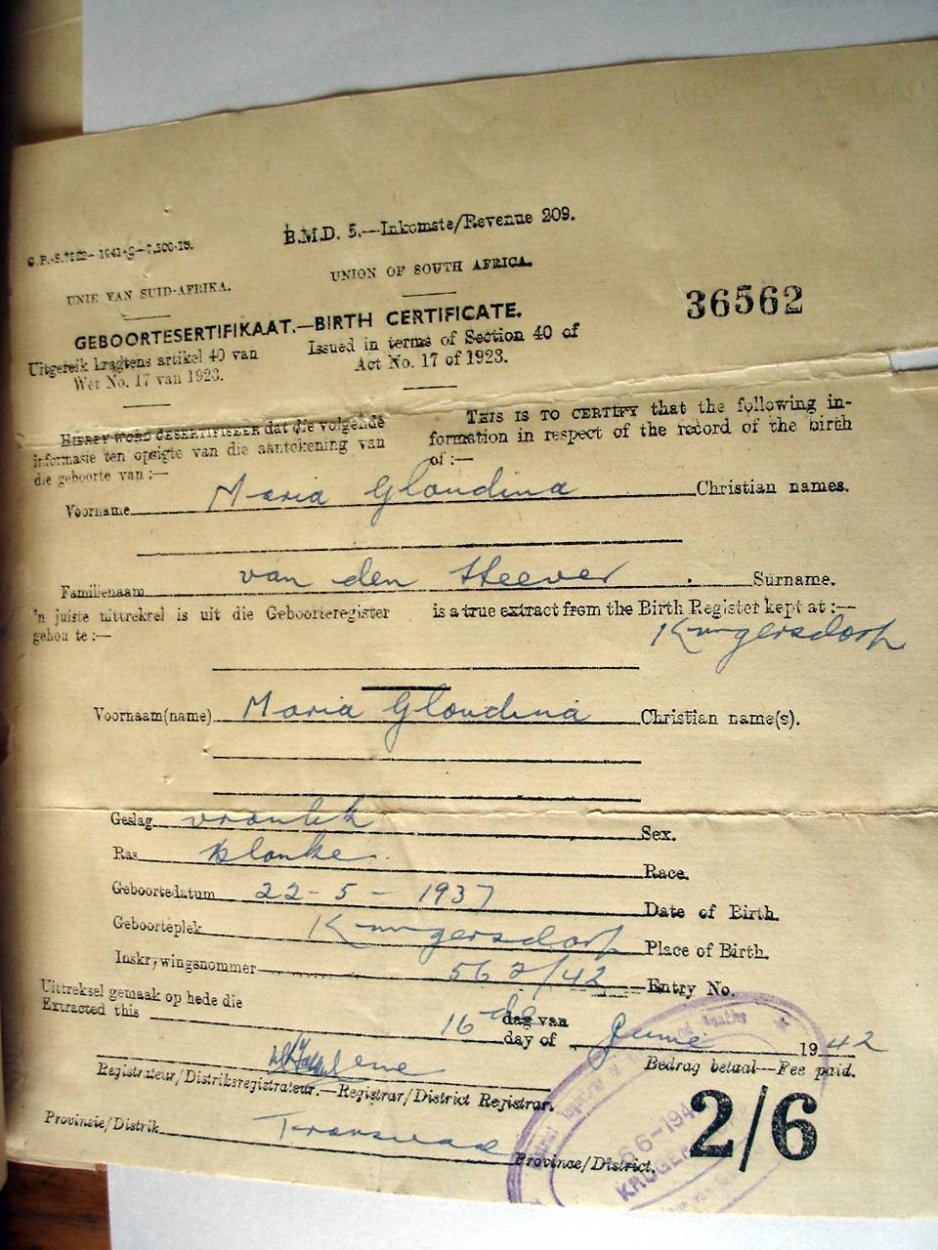 B.M.D. 5.—Inkomste/Revenue 209.
UNIE VAN SUID-AFRIKA.
UNION OF SOUTH AFRICA.
36562
GEBOORTESERTIFIKAAT.—BIRTH CERTIFICATE.
Uitgereik kragtens artikel 40 van
Wet No. 17 van 1923.
Issued in terms of Section 40 of
Act No. 17 of 1923.
HIERBY WORD GESERTIFISEER dat die volgende
informasie ten opsigte van die aantekening van
die geboorte van :—
THIS IS TO CERTIFY that the following in-
formation in respect of the record of the birth
of :—
Voorname Maria Gloudina Christian names.
Familienaam van den Heever Surname.
'n juiste uittreksel is uit die Geboorteregister
gehou te :—
is a true extract from the Birth Register kept at :—
Krugersdorp
Voornaam(name) Maria Gloudina Christian name(s).
Geslag vroulik Sex.
Ras blanke. Race.
Geboortedatum 22-5-1937 Date of Birth.
Geboorteplek Krugersdorp Place of Birth.
Inskrywingsnommer 562/42 Entry No.
Uittreksel gemaak op hede die
Extracted this 16 de dag van
day of June 1942
Bedrag betaal—Fee paid.
Registrateur/Distriksregistrateur.—Registrar/District Registrar.
2/6
Provinsie/Distrik Transvaal Province/District.